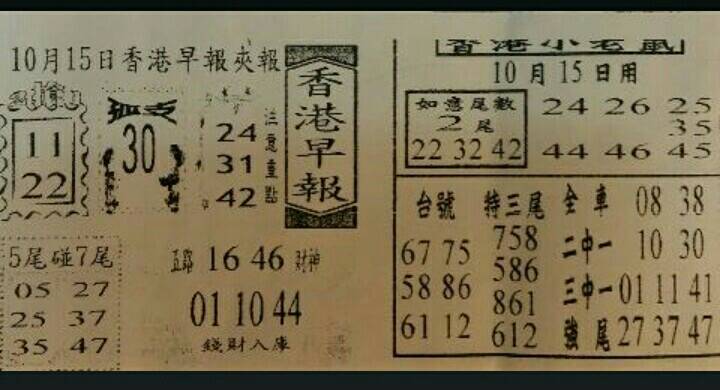 10月15日香港早報夾報
香港早報
11
22
孤支
30
24
31
42
注意重點
5尾碰7尾
05 27
25 37
35 47
五路 16 46 財神
01 10 44
錢財入庫
香港小老鼠
10月15日用
如意尾數
2尾
22 32 42
24 26 25
35
44 46 45
台號 特三尾 全車 08 38
67 75 758 二中一 10 30
58 86 586 三中一 01 11 41
861
61 12 612 強尾 27 37 47